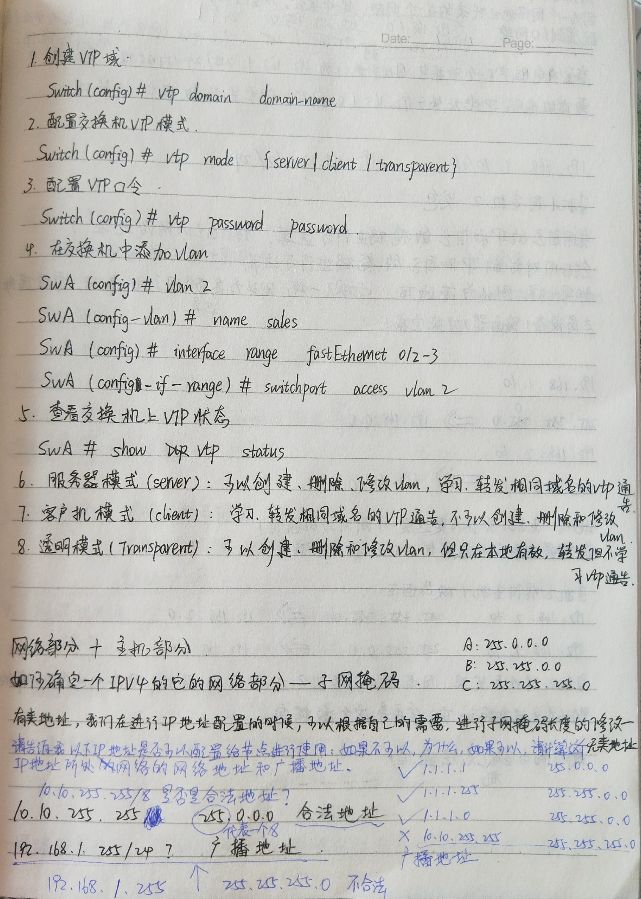 Date: Page:
1. 创建VTP域.
Switch(config)# vtp domain domain-name
2. 配置交换机VTP模式.
Switch(config)# vtp mode {server|client|transparent}
3. 配置VTP口令.
Switch(config)# vtp password password.
4. 在交换机中添加vlan
SwA (config)# vlan 2
SwA (config-vlan)# name sales
SwA (config)# interface range fastEthernet 0/2-3
SwA (config-if-range)# switchport access vlan 2
5. 查看交换机上VTP状态
SwA # show vtp status
6. 服务器模式(server): 可以创建、删除、修改vlan, 学习、转发相同域名的vtp通告.
7. 客户机模式(client): 学习、转发相同域名的VTP通告, 不可以创建、删除和修改vlan.
8. 透明模式(Transparent): 可以创建、删除和修改vlan, 但只在本地有效, 转发但不学习vtp通告.
网络部分 + 主机部分
A: 255.0.0.0
B: 255.255.0.0
C: 255.255.255.0
如何确定一个IPV4的它的网络部分——子网掩码.
有类地址, 我们在进行IP地址配置的时候, 可以根据自己的需要, 进行子网掩码长度的修改—无类地址
请告诉我以下IP地址是否可以配置给节点进行使用: 如果不可以, 为什么, 如果可以, 请计算这个
IP地址所处的网络的网络地址和广播地址.
10.10.255.255/8 是否是合法地址?
10.10.255.255 255.0.0.0 合法地址
代表一个8
192.168.1.255/24? 广播地址
192.168.1.255 ↑ 255.255.255.0 不合法
✓ 1.1.1.1 255.0.0.0
✓ 1.1.1.255 255.255.0.0
✓ 1.1.1.0 255.255.0.0
× 10.10.255.255 255.255.255.0
广播地址